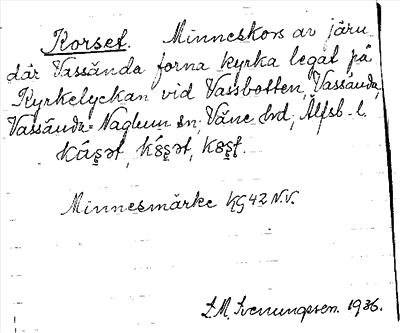 Korset. Minneskors av järn
där Vassända forna kyrka legat på
Kyrkelyckan vid Vassbotten, Vassända,
Vassända-Naglum sn; Väne hd; Älfsb. l.
Minnesmärke 42 N.V.
L.M. Svenungsson. 1936.